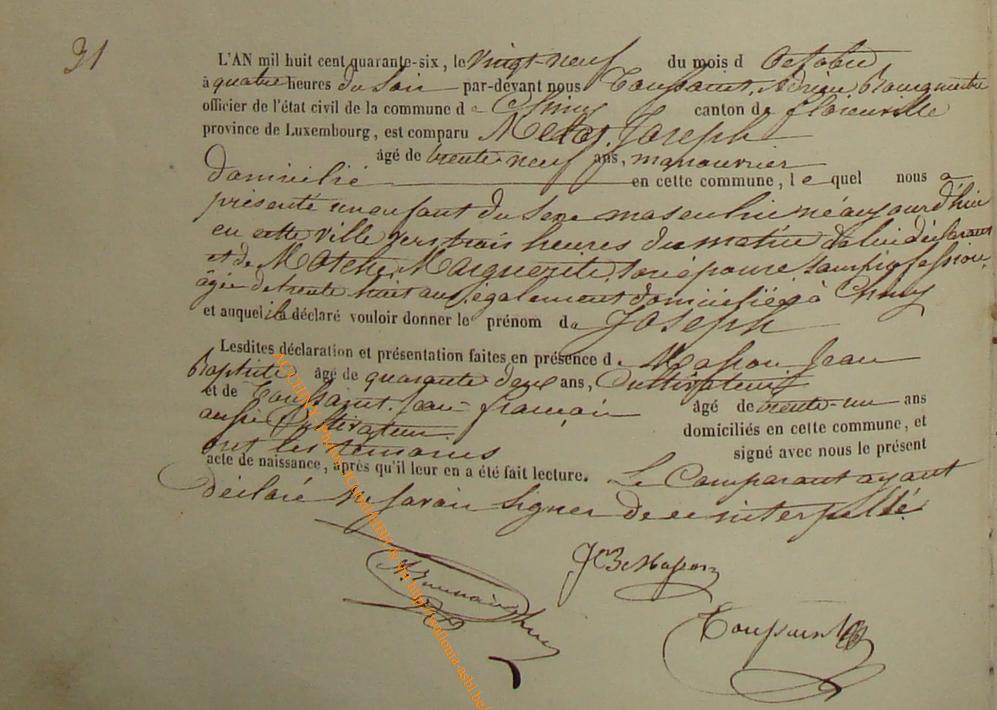 31
L'AN mil huit cent quarante-six, le vingt-neuf du mois d Octobre
à quatre heures du Soir par-devant nous Toussaint, Adrien Bourgmestre
officier de l'état civil de la commune d e Chiny canton de florenville
province de Luxembourg, est comparu Joseph
âgé de trente-neuf ans, manouvrier
domicilié en cette commune, l e quel nous a
présenté un enfant du Sexe masculin né aujourd'hui
en cette ville vers trois heures du matin de lui déclarant
et de Marguerite, son épouse, sans profession,
âgée de trente-huit ans, également domiciliée à Chiny
et auquel il a déclaré vouloir donner le prénom de Joseph
Lesdites déclaration et présentation faites en présence de Masson Jean
Baptiste âgé de quarante deux ans, Cultivateur
et de Toussaint, Jean-françois âgé de trente-un ans
aussi Cultivateur domiciliés en cette commune, et
ont les temoins signé avec nous le présent
acte de naissance, après qu'il leur en a été fait lecture. Le Comparant ayant
déclaré ne savoir signer de ce interpellé.
Jn Bte Masson
Toussaint